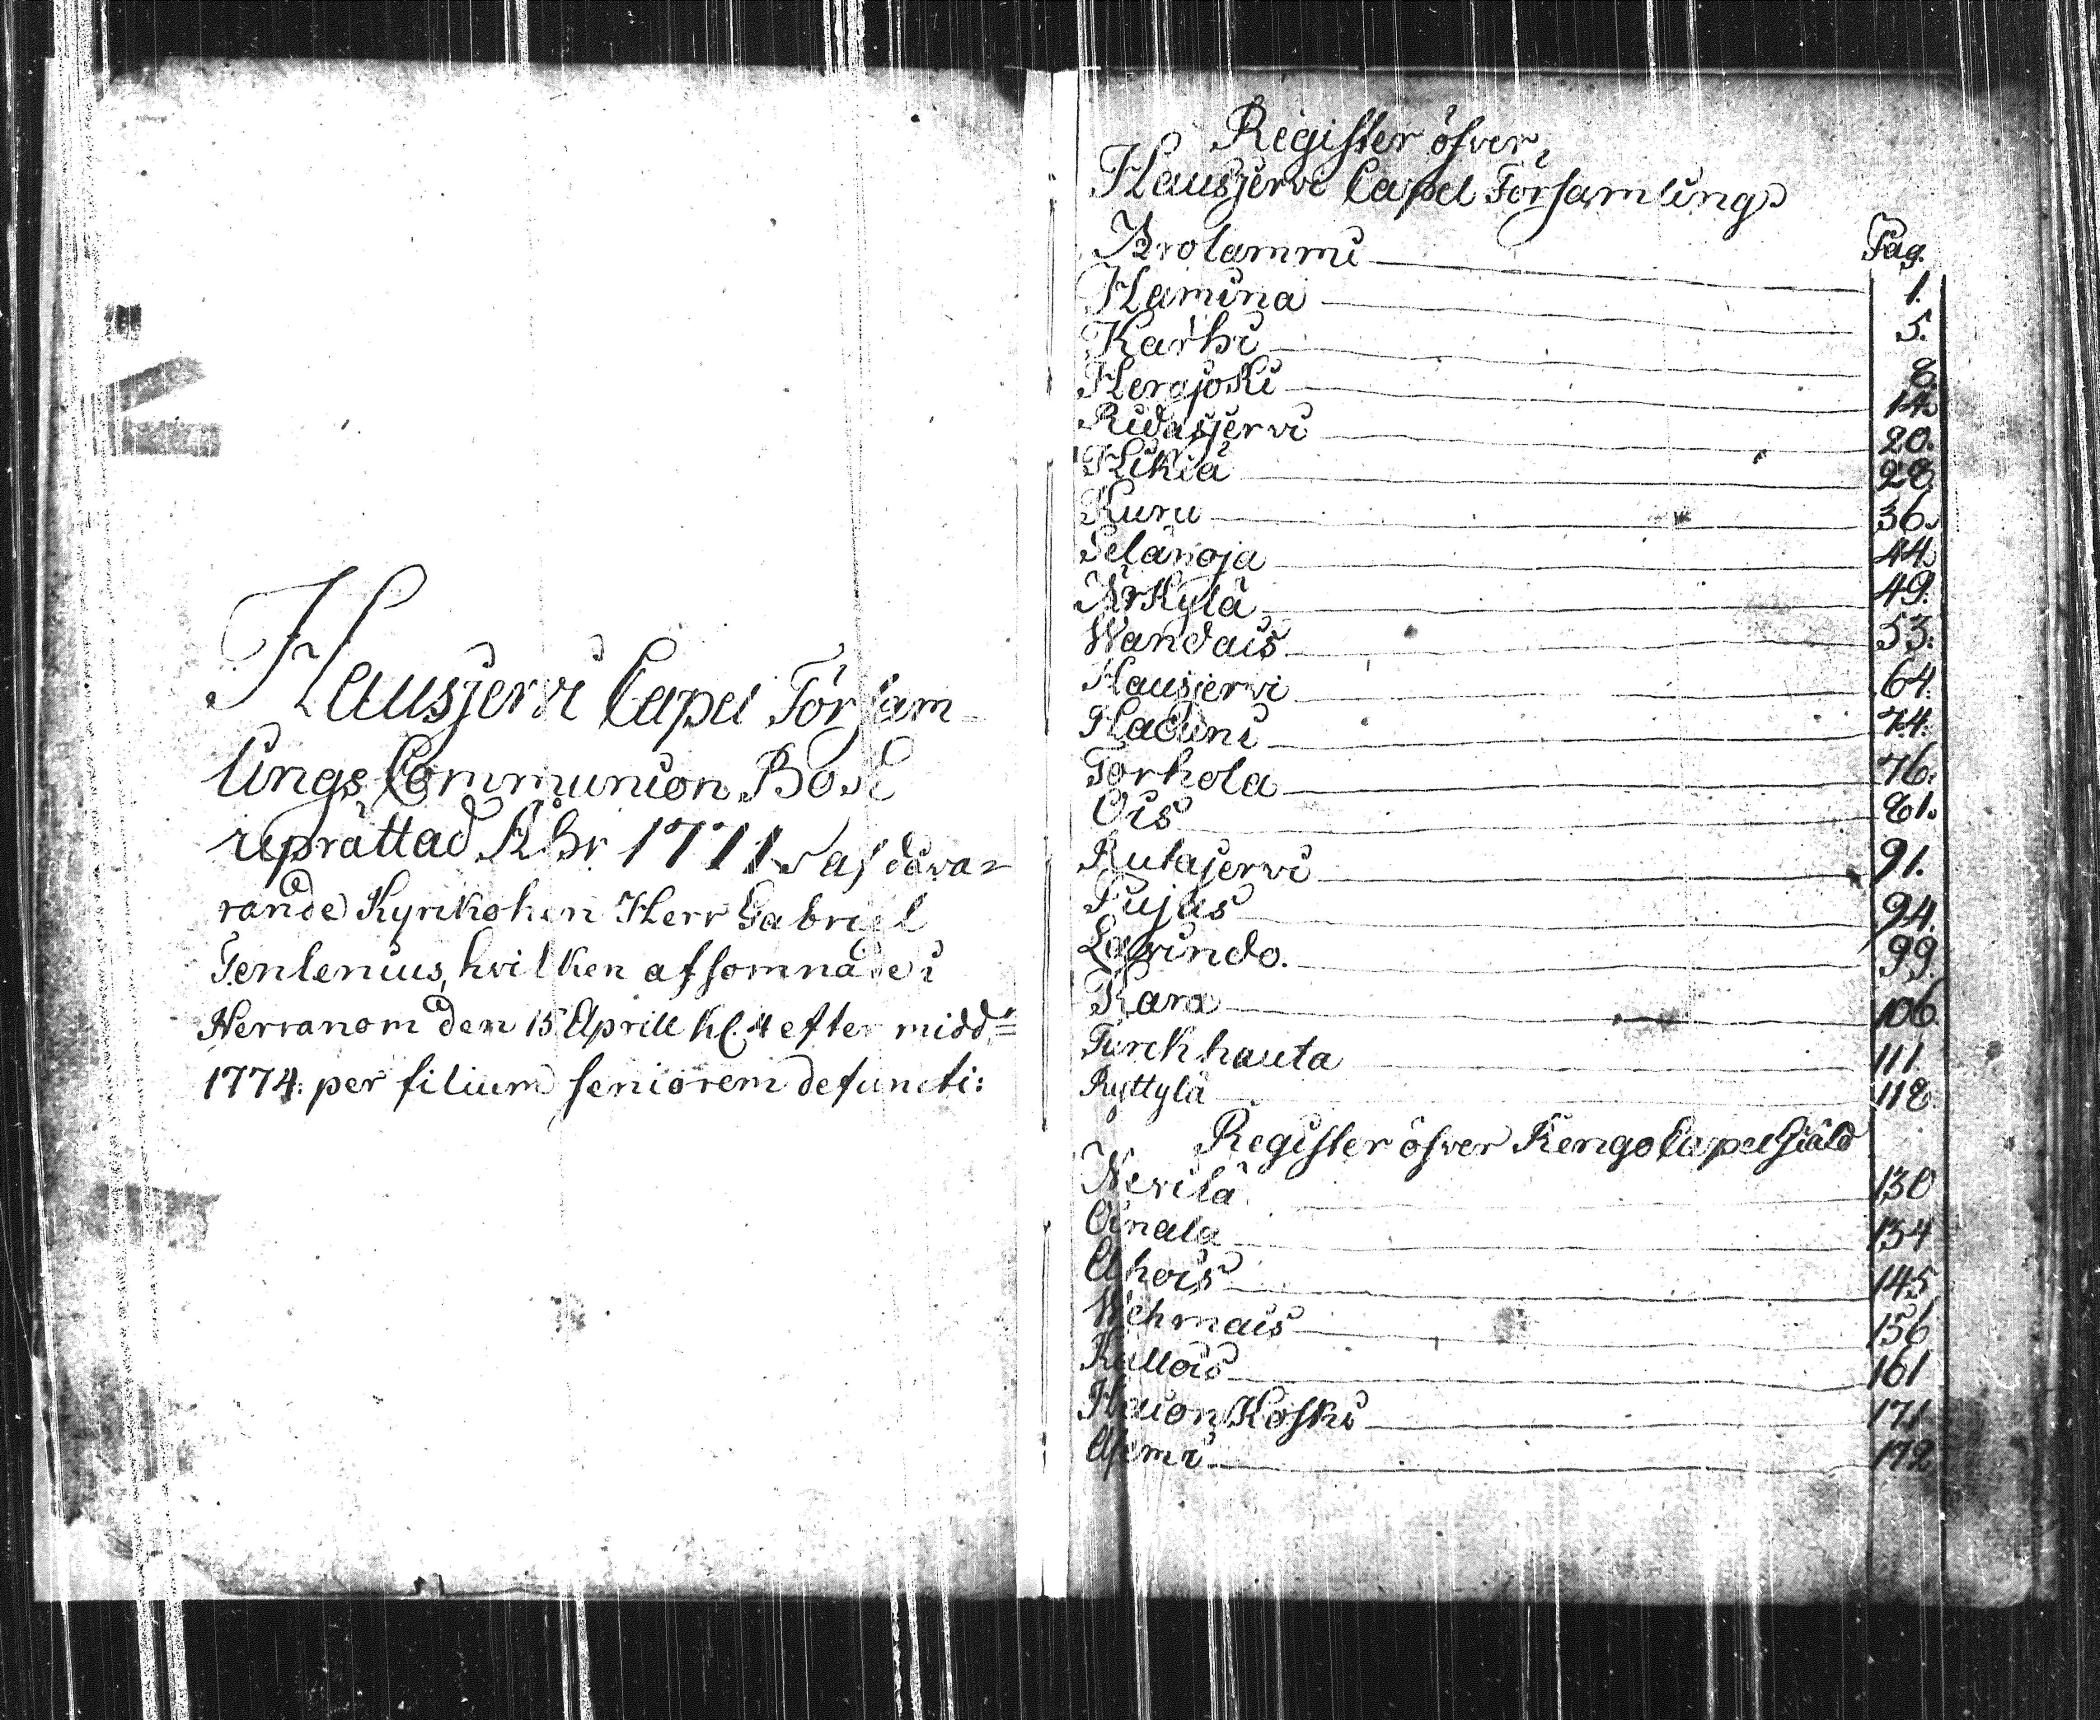 Hausjervi Capel Försam-
lings Communion Bok
uprättad Åhr 1771 af dåva=
rande Kyrkoh:n Herr Gabriel
Tenlenius, hvilken afsomnade i
Herranom den 15 Aprill kl. 4 efter midd=
1774: per filium seniorem defuncti:
Register öfver
Hausjervi Capel Församling
Pag.
Arolammi 1.
Hamina 5.
Karhi 8.
Herajoki 14.
Ridasjervi 20.
Hikiä 28.
Kuru 36.
Selänoja 44.
Arkylä 49.
Wandais 53.
Hausjervi 64.
Hadini 74.
Torhola 76.
Ois 81.
Rutajervi 91.
Pujus 94.
Lavindo. 99.
Kara 106.
Turckhauta 111.
Ryttylä 118.
Register öfver Kengo Capel Giäld
Nevilä 130
Oinala 134
Ahois 145
Wehmais 156
Kallois 161
Hauon Koski 171
172